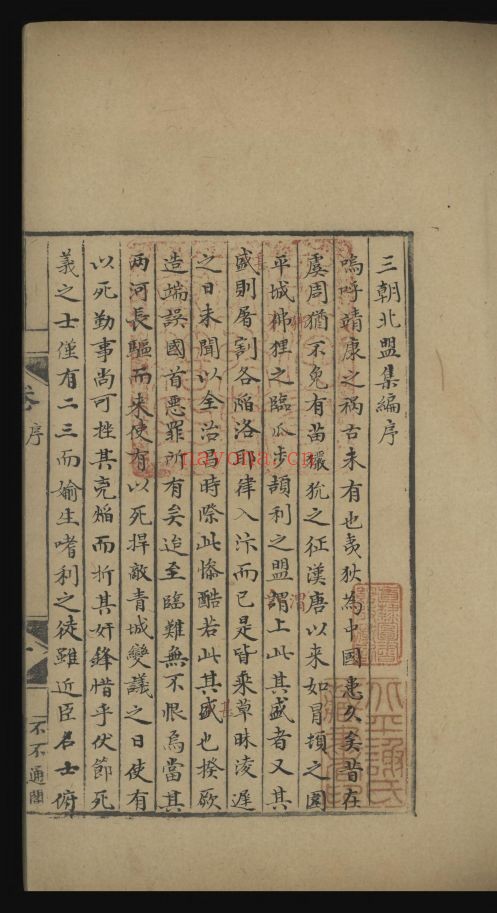 三朝北盟集編序
嗚呼靖康之禍古未有也夷狄為中國患久矣昔在
虞周猶不免有苗玁狁之征漢唐以来如冒頓之圍
平城佛狸之臨瓜步頡利之盟謂上此其盛者又其
渭
盛則屠割各陥洛耶律入汴而已是皆乘草昧淩遲
之日未聞以全治昌時際此惨酷若此其盛也揆厥
甚
造端誤國首惡罪所有矣迨至臨難無不恨焉當其
两河長驅而来使有以死捍敵青城變議之日使有
以死勤事尚可挫其兇焰而折其奸鋒惜乎伏節死
義之士僅有二三而媮生嗜利之徒雖近臣名士俯
卷
序
不不通閣
nayona.cn